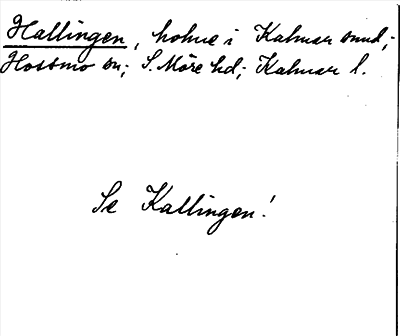 Hallingen, holme i Kalmar sund,
Hossmo sn; S. Möre hd; Kalmar l.
Se Kallingen!